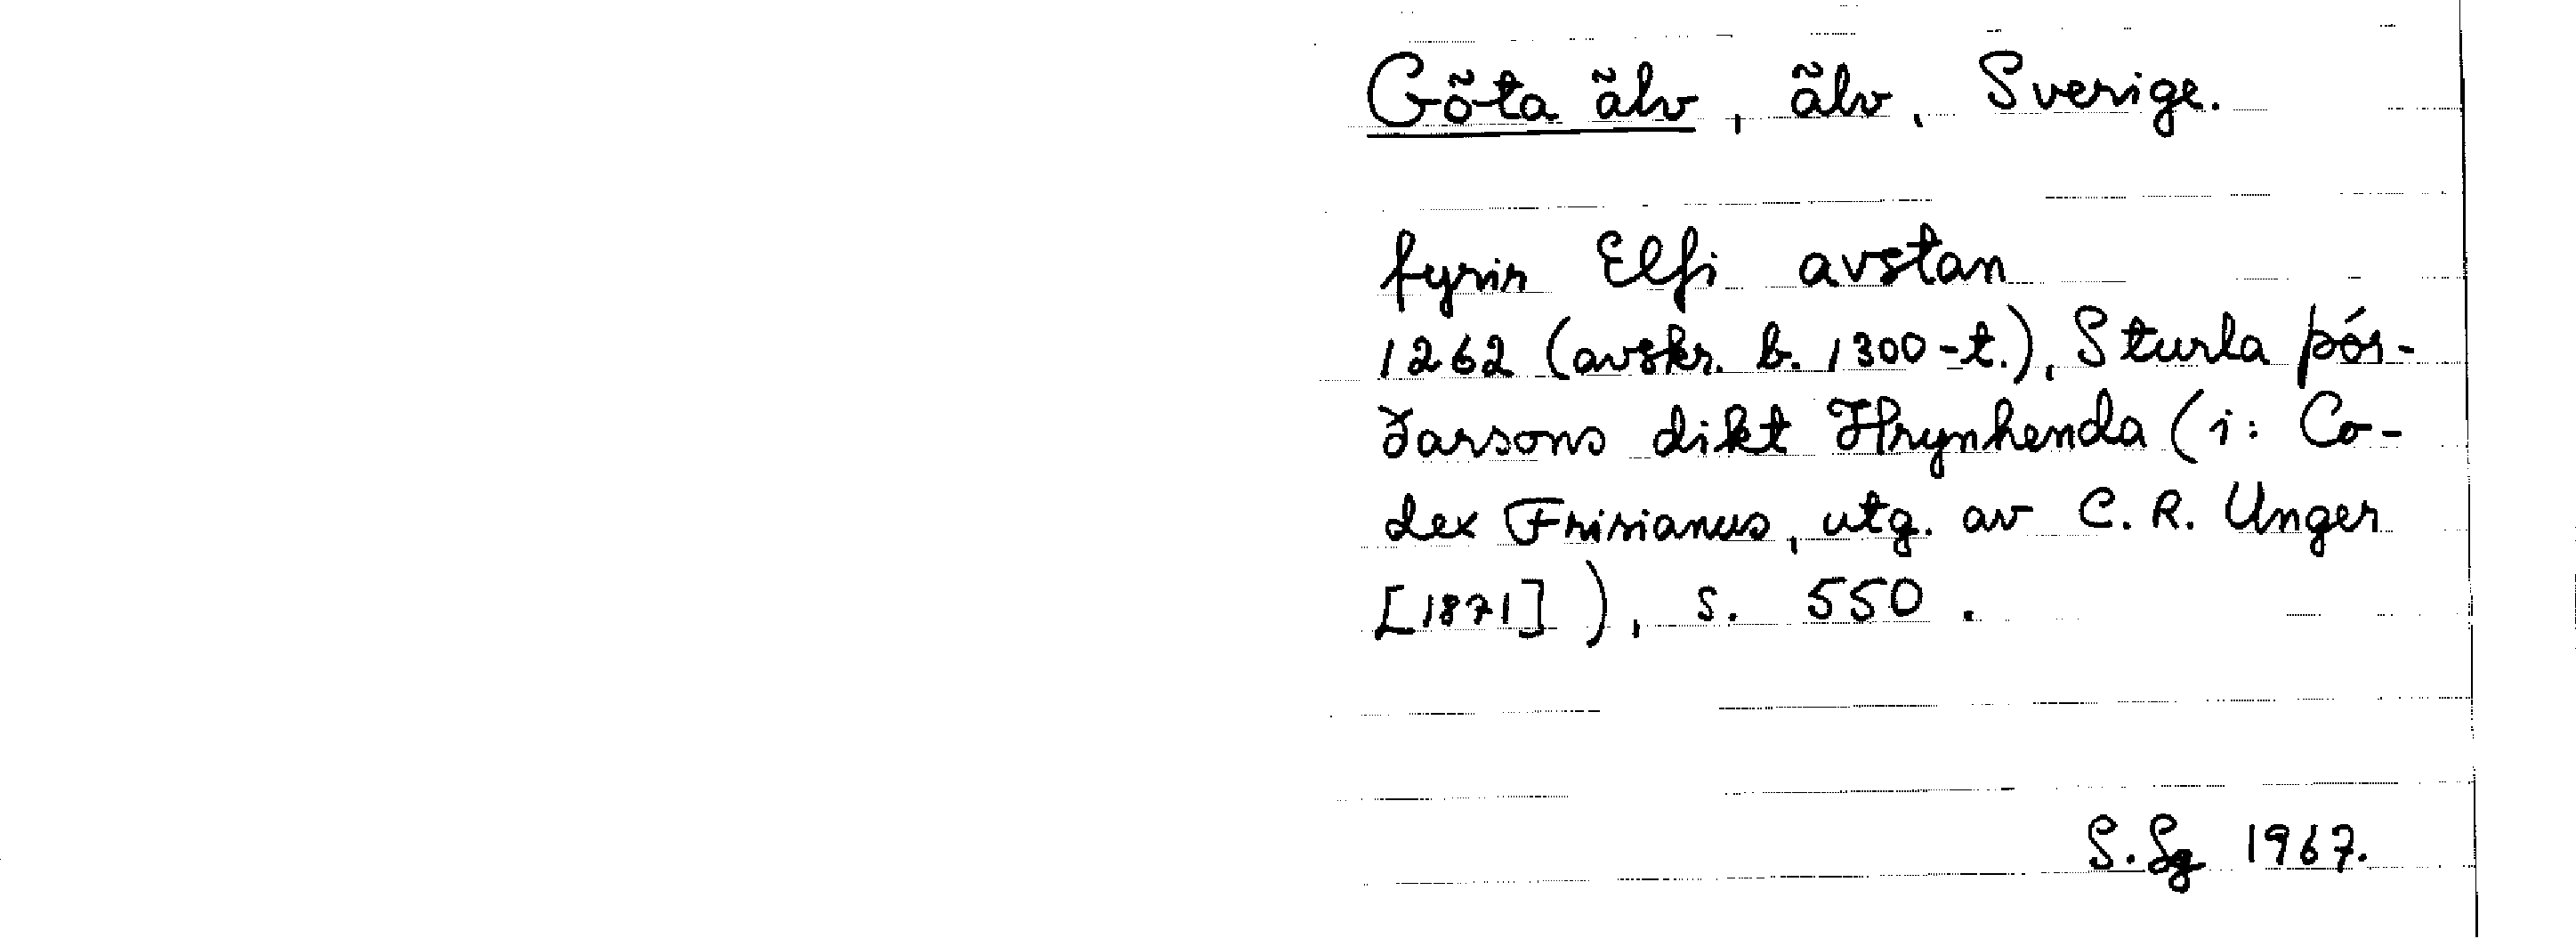 Göta älv, älv, Sverige.
fyrir Elfi avstan
1262 (avskr. b. 1300-t.), Sturla Þór-
ðarsons dikt Hrynhenda (i: Co-
dex Frisianus, utg. av C. R. Unger
[1871]), s. 550.
S. Sg 1967.